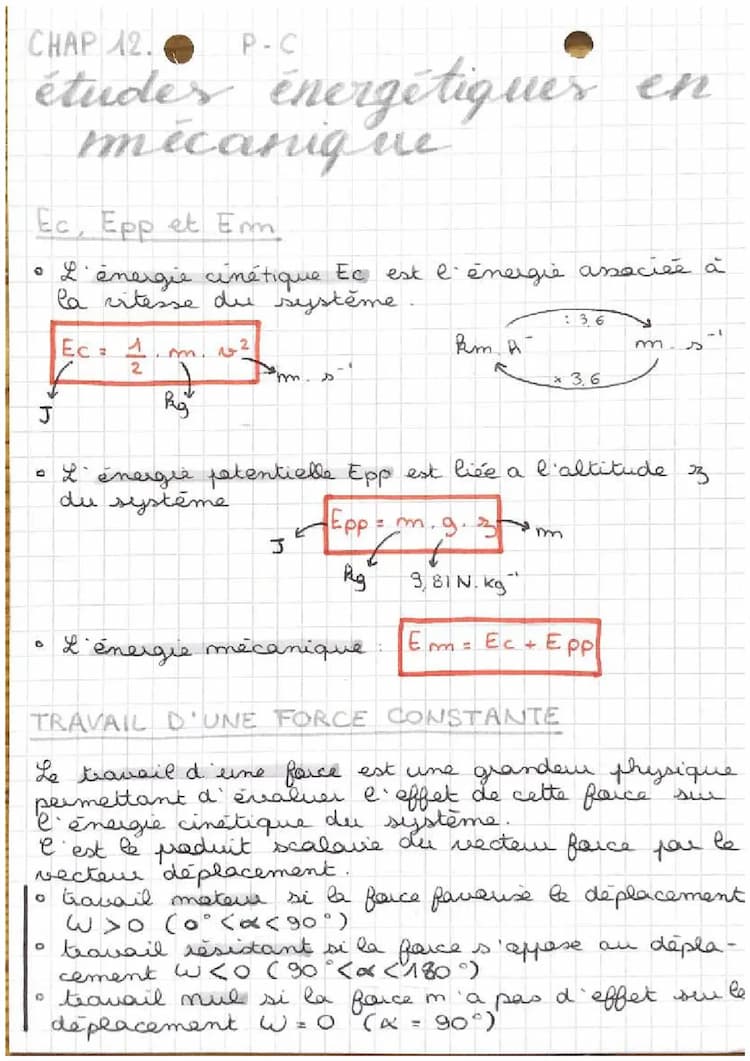 CHAP 12. P-C
études énergétiques en
mécanique
Ec, Epp et Em
• L'énergie cinétique Ec est l'énergie associée à
la vitesse du système.
Ec = 1/2 . m . v²
J
kg
m.s⁻¹
: 3,6
km.h⁻
m.s⁻¹
× 3,6
• L'énergie potentielle Epp est liée a l'altitude z
du système
Epp = m . g . z
J
kg
9,81 N.kg⁻¹
m
• L'énergie mécanique : Em = Ec + Epp
TRAVAIL D'UNE FORCE CONSTANTE
Le travail d'une force est une grandeur physique
permettant d'évaluer l'effet de cette force sur
l'énergie cinétique du système.
C'est le produit scalaire du vecteur force par le
vecteur déplacement.
• travail moteur si la force favorise le déplacement
W > 0 (0° < α < 90°)
• travail résistant si la force s'oppose au dépla-
cement W < 0 (90° < α < 180°)
• travail nul si la force n'a pas d'effet sur le
déplacement W = 0 (α = 90°)